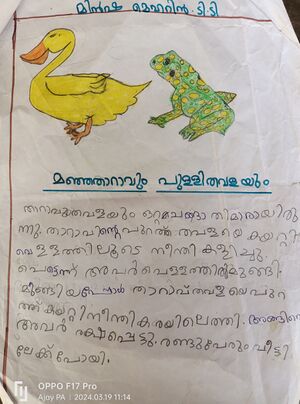 മിൻഷ മെഹറിൻ. ടി.ടി
മഞ്ഞതാറാവും പുള്ളിതവളയും
തറാവുതവളയും ഒറ്റ തിമാരായിരു
ന്നു. താറാവിന്റെപുറത്ത് തവളയെ കയറ്റി
വെള്ളത്തിലൂടെ നീന്തി കളിച്ചു.
പെട്ടെന്ന് അവർ വെള്ളത്തിന്റടിമുണ്ടി.
മുണ്ടിയപ്പോൾ താറാവ് തവളയെപുറ
ത്ത് കയറ്റിനീന്തികരയിലെത്തി. അങ്ങിനെ
അവർ രക്ഷപ്പെട്ടു. രണ്ടുപേരും വീട്ടി
ലേക്ക് പോയി.
OPPO F17 Pro
Ajoy PA | 2024.03.19 11:14